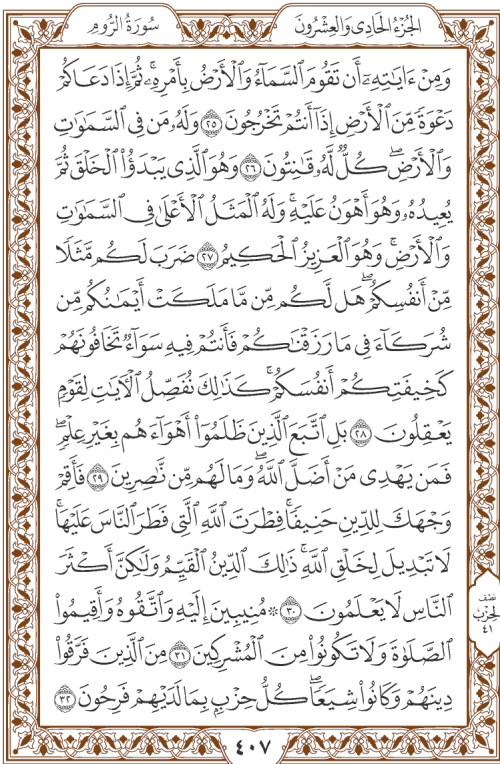 سُورَةُ الرُّومِ
الجُزْءُ الحَادِي وَالعِشْرُونَ
وَمِنْ ءَايَٰتِهِۦٓ أَن تَقُومَ ٱلسَّمَآءُ وَٱلْأَرْضُ بِأَمْرِهِۦ ۚ ثُمَّ إِذَا دَعَاكُمْ
دَعْوَةً مِّنَ ٱلْأَرْضِ إِذَآ أَنتُمْ تَخْرُجُونَ ٢٥ وَلَهُۥ مَن فِى ٱلسَّمَٰوَٰتِ
وَٱلْأَرْضِ ۖ كُلٌّ لَّهُۥ قَٰنِتُونَ ٢٦ وَهُوَ ٱلَّذِى يَبْدَؤُا۟ ٱلْخَلْقَ ثُمَّ
يُعِيدُهُۥ وَهُوَ أَهْوَنُ عَلَيْهِ ۚ وَلَهُ ٱلْمَثَلُ ٱلْأَعْلَىٰ فِى ٱلسَّمَٰوَٰتِ
وَٱلْأَرْضِ ۚ وَهُوَ ٱلْعَزِيزُ ٱلْحَكِيمُ ٢٧ ضَرَبَ لَكُم مَّثَلًا
مِّنْ أَنفُسِكُمْ ۖ هَل لَّكُم مِّن مَّا مَلَكَتْ أَيْمَٰنُكُم مِّن
شُرَكَآءَ فِى مَا رَزَقْنَٰكُمْ فَأَنتُمْ فِيهِ سَوَآءٌ تَخَافُونَهُمْ
كَخِيفَتِكُمْ أَنفُسَكُمْ ۚ كَذَٰلِكَ نُفَصِّلُ ٱلْءَايَٰتِ لِقَوْمٍ
يَعْقِلُونَ ٢٨ بَلِ ٱتَّبَعَ ٱلَّذِينَ ظَلَمُوٓا۟ أَهْوَآءَهُم بِغَيْرِ عِلْمٍ ۖ
فَمَن يَهْدِى مَنْ أَضَلَّ ٱللَّهُ ۖ وَمَا لَهُم مِّن نَّٰصِرِينَ ٢٩ فَأَقِمْ
وَجْهَكَ لِلدِّينِ حَنِيفًا ۚ فِطْرَتَ ٱللَّهِ ٱلَّتِى فَطَرَ ٱلنَّاسَ عَلَيْهَا ۚ
لَا تَبْدِيلَ لِخَلْقِ ٱللَّهِ ۚ ذَٰلِكَ ٱلدِّينُ ٱلْقَيِّمُ وَلَٰكِنَّ أَكْثَرَ
ٱلنَّاسِ لَا يَعْلَمُونَ ٣٠ ۞ مُنِيبِينَ إِلَيْهِ وَٱتَّقُوهُ وَأَقِيمُوا۟
ٱلصَّلَوٰةَ وَلَا تَكُونُوا۟ مِنَ ٱلْمُشْرِكِينَ ٣١ مِنَ ٱلَّذِينَ فَرَّقُوا۟
دِينَهُمْ وَكَانُوا۟ شِيَعًا ۖ كُلُّ حِزْبٍۭ بِمَا لَدَيْهِمْ فَرِحُونَ ٣٢
نصف
الحزب
٤١
٤٠٧